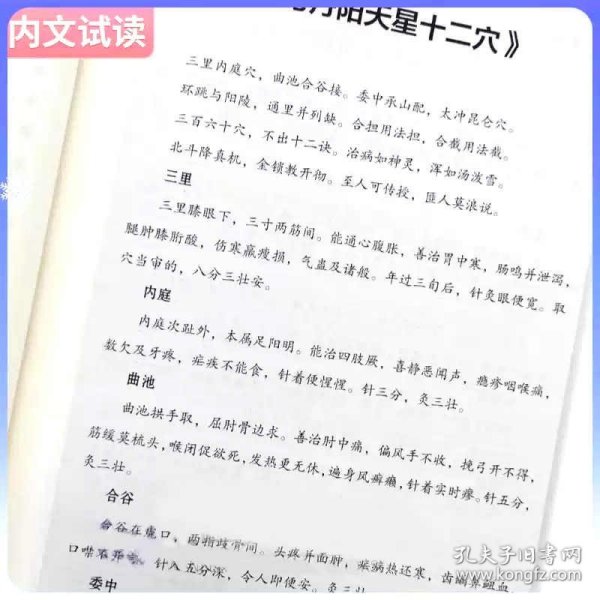 内文试读
丹阳天星十二穴》
三里内庭穴，曲池合谷接。委中承山配，太冲昆仑穴。
环跳与阳陵，通里并列缺。合担用法担，合截用法截。
三百六十穴，不出十二诀。治病如神灵，浑如汤泼雪。
北斗降真机，金锁教开彻。至人可传授，匪人莫浪说。
三里
三里膝眼下，三寸两筋间。能通心腹胀，善治胃中寒，肠鸣并泄泻，
腿肿膝胻酸，伤寒羸瘦损，气蛊及诸般。年过三旬后，针灸眼便宽。取
穴当审的，八分三壮安。
内庭
内庭次趾外，本属足阳明。能治四肢厥，喜静恶闻声，瘾疹咽喉痛，
数欠及牙疼，疟疾不能食，针着便惺惺。针三分，灸三壮。
曲池
曲池拱手取，屈肘骨边求。善治肘中痛，偏风手不收，挽弓开不得，
筋缓莫梳头，喉闭促欲死，发热更无休，遍身风癣癞，针着实时瘳。针五分，
灸三壮。
合谷
合谷在虎口，两指歧骨间。头疼并面肿，疟病热还寒，齿龋鼻衄血，
口噤不开言。针入五分深，令人即便安。灸三壮
委中
孔夫子旧书网
www.kongfz.com